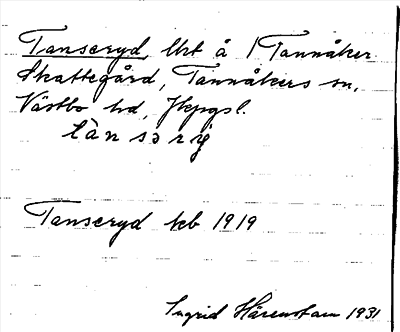 Tanseryd, lht å 1 Tannåker
Skattegård, Tannåkers sn,
Västbo hd, Jkpgs l.
tànsərij
Tanseryd kb 1919
Ingrid Härenstam 1931